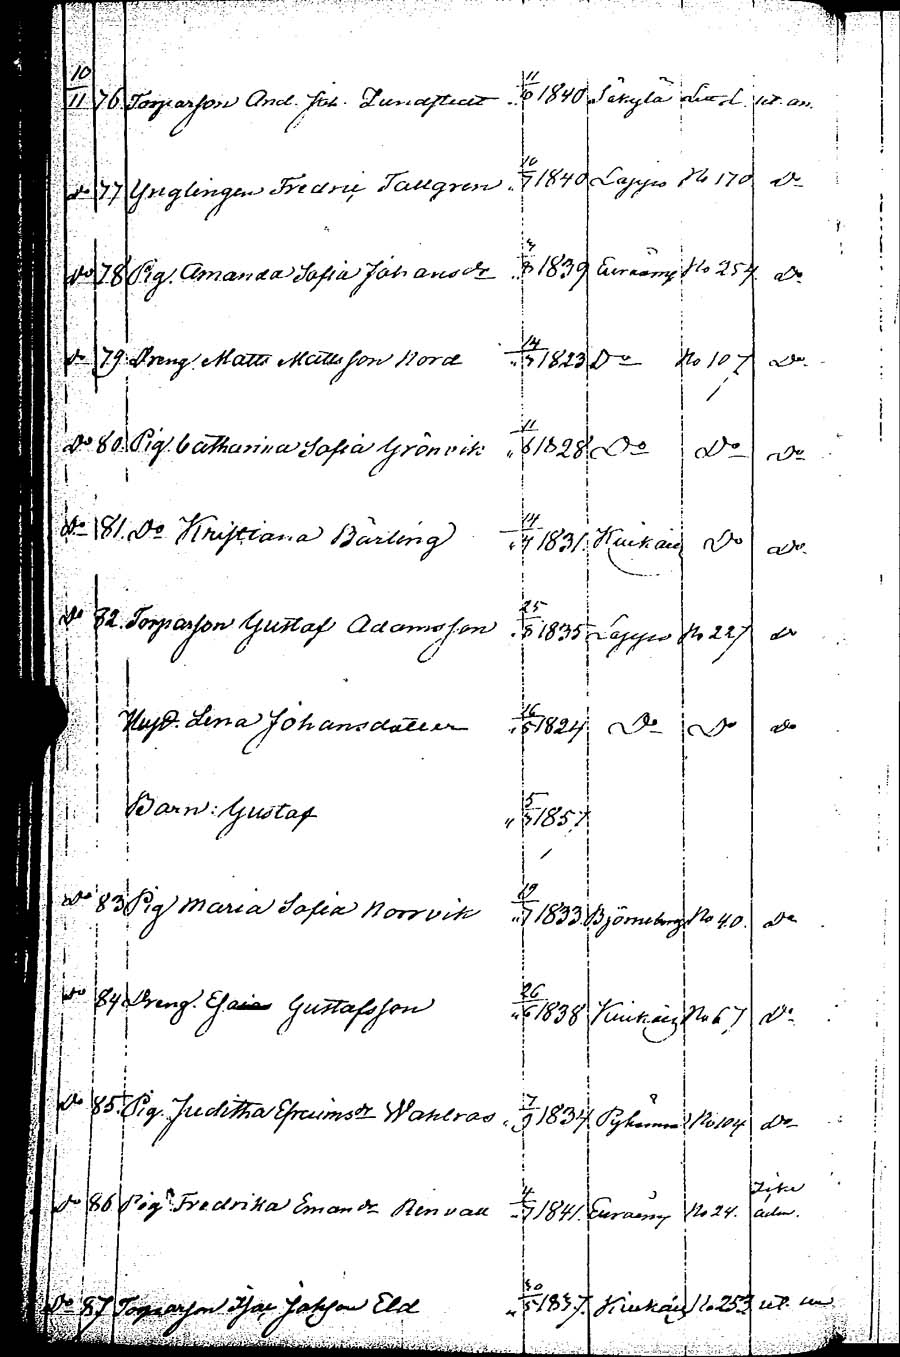 10/11 76 Torparson And. Joh. Lundstedt 11/6 1840 Säkylä ut. an.
Do 77 Ynglingen Fredric Tallgren 10/7 1840 Lappo No 170 Do
Do 78 Pig. Amanda Sofia Johansdr 1839 Euraåm. No 254 Do
Do 79 Dreng Matts Mattsson Nord 14/3 1823 Do No 107 Do
Do 80. Pig. Catharina Sofia Grönvik 11/6 1828 Do Do Do
Do 81. Do Kristiana Bärling 14/4 1831. Kiukais Do Do
Do 82. Torparson Gustaf Adamsson 25/8 1835 Lappo No 227 Do
Hust. Lena Johansdotter 16/5 1824 Do Do Do
Barn: Gustaf 5/3 1857
Do 83 Pig Maria Sofia Norrvik 19/7 1833 Björneborg No 40. Do
Do 84 Dreng. Esaias Gustafsson 26/6 1838 Kiukais No 67 Do
Do 85. Pig. Juditha Efraimsdr Wahlros 7/9 1834 No 104 Do
Do 86 Pig. Fredrika Emandr Renvall 4/7 1841. Euraåm. No 24.
Do 87 Torparson Isac Jakson Eld 30/5 1837. Kiukais No 253 ut. an